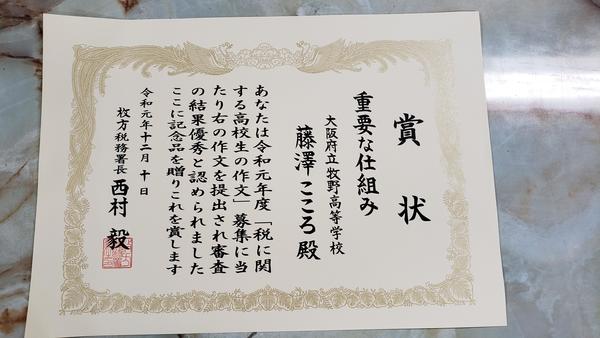 賞状
重要な仕組み
大阪府立牧野高等学校
藤澤こころ殿
あなたは令和元年度「税に関
する高校生の作文」募集に当
たり右の作文を提出され審査
の結果優秀と認められました
ここに記念品を贈りこれを賞します
令和元年十二月十日
枚方税務署長西村毅